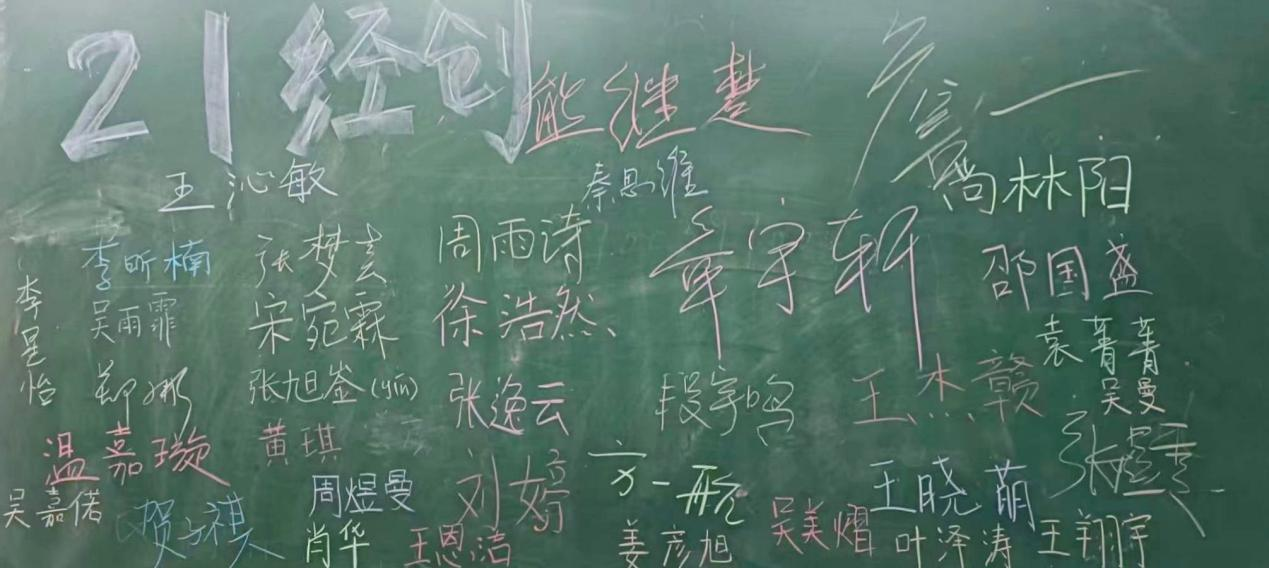 21经创
熊继慧
王沁敏
秦思维
尚林阳
李昕楠
张梦云
周雨诗
章宇轩
邵国盛
李星怡
吴雨霏
宋宛霖
徐浩然
袁菁菁
郑彬
张旭崟(yín)
张逸云
段宇鸣
王杰赣
吴曼
温嘉璇
黄琪
刘婷
方一
王晓萌
吴嘉偌
贺祺
周煜曼
肖华
王恩洁
姜彦旭
吴美熠
叶泽涛
王翔宇